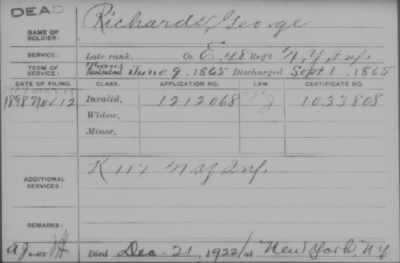 DEAD
NAME OF SOLDIER: Richards, George
SERVICE: Late rank, Co. E, 48 Reg't N.Y. Inf.
TERM OF SERVICE: Enlisted June 9, 1865 Discharged Sept 1, 1865
DATE OF FILING. CLASS. APPLICATION NO. LAW. CERTIFICATE NO.
1898 Nov. 12 Invalid, 1212068 1033808
Widow,
Minor,
ADDITIONAL SERVICES: K 117 N Y Inf.
REMARKS:
Died Dec. 21, 1922, at New York, NY